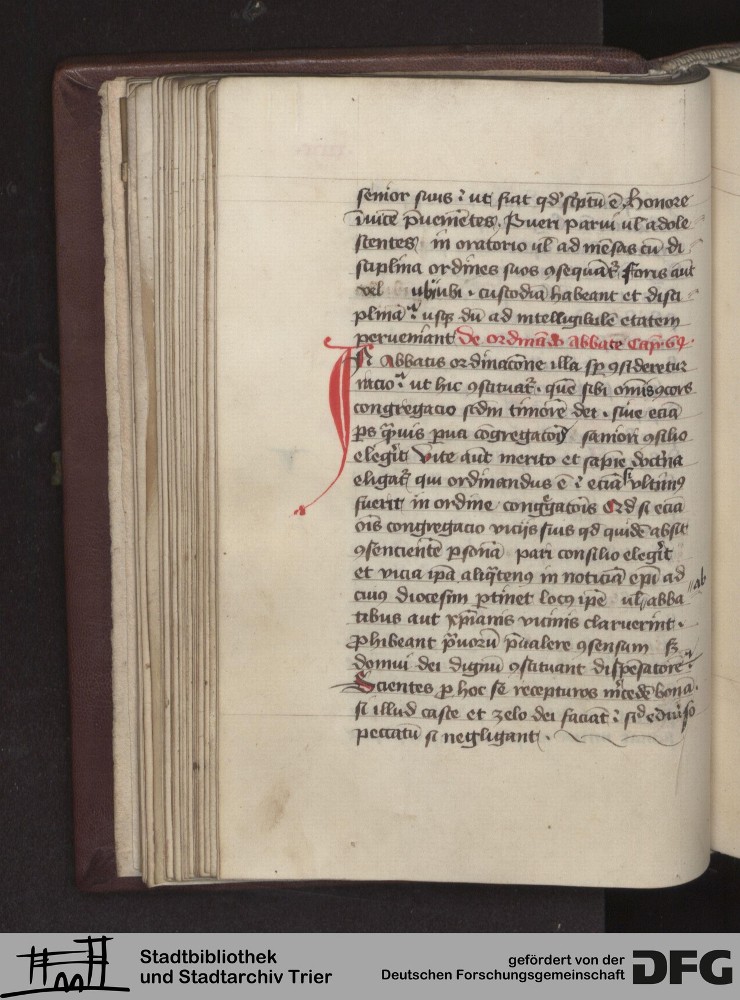 senior suus : ut fiat qd̓ sc̓ptū ē. Honore
īuicē p̄uenientes. Pueri parui ul̄ adole
scentes in oratorio ul̄ ad mēsas cū di
sciplina ordines suos ꝯsequāt᷑. Foris aut̄
vel ubiubi . custodiā habeant et disci
plinā : usqꝫ dū ad intelligibilē etatem
perueniant De ordinādo abbate Cap. 64.
IN Abbatis ordinacōne illa sp̄ ꝯsideretur
racio : ut hic ꝯstituat᷑ . quē sibi om̄is ꝯcors
congregacio sc̄dm timorē dei . siue eciā
ps̄ q̄uis parua cōgregatōis saniori ꝯsilio
elegit̓ Vite aut̄ merito et sapiē doctrina
eligat᷑ qui ordinandus ē : eciā si vltimꝯ
fuerit in ordine congregatōis Qd̓ si eciā
ois congregacio vicijs suis qd quidē absit
ꝯsencientē ꝑsonā pari consilio elegit̓
et vicia ip̄a aliq̄tenꝯ in noticiā ep̄i ad
cuiꝯ diocesim ꝑtinet locꝯ ip̄e ul̄ abba //ab
tibus aut xp̄ianis vicinis claruerint .
ꝓhibeant prauorū p̄ualere ꝯsensum sꝫ
domui dei dignū ꝯstituant dispēsatorē .
Scientes ꝑ hoc se recepturos m̓cedē bonā .
si illud caste et zelo dei faciāt : sic̄ ediuīso
peccatū si negligant .
Stadtbibliothek
und Stadtarchiv Trier
gefördert von der
Deutschen Forschungsgemeinschaft
DFG